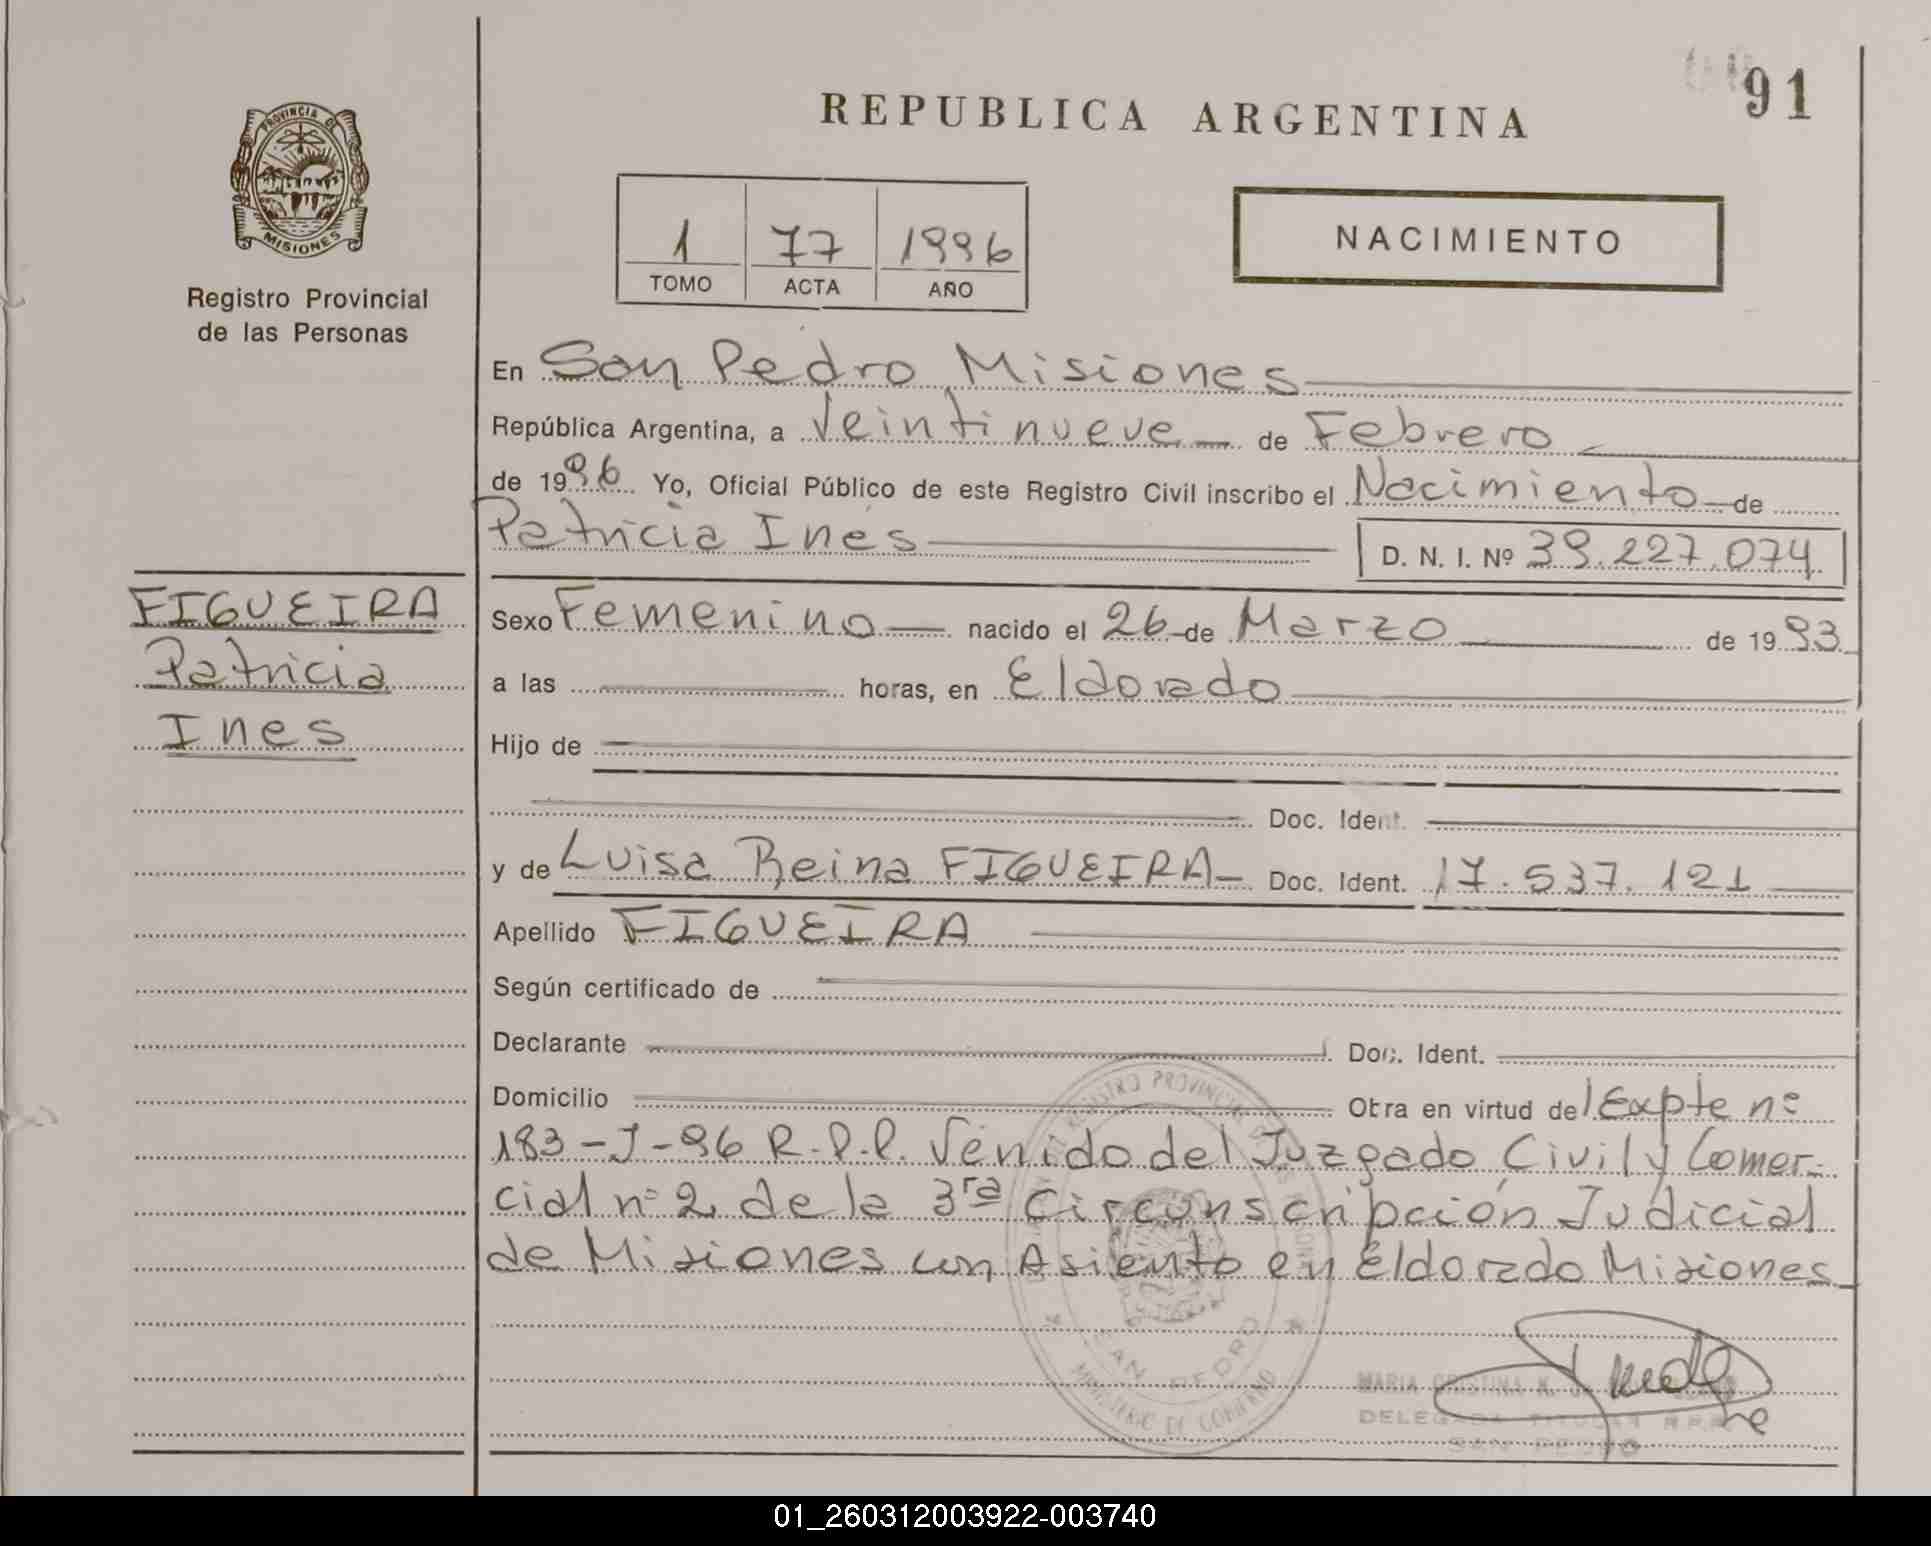 91
REPUBLICA ARGENTINA
PROVINCIA DE
MISIONES
Registro Provincial
de las Personas
1 77 1996
TOMO ACTA AÑO
NACIMIENTO
En San Pedro Misiones
República Argentina, a Veintinueve de Febrero
de 1996 Yo, Oficial Público de este Registro Civil inscribo el Nacimiento de
Patricia Inés D. N. I. Nº 39.227.074
FIGUEIRA
Patricia
Ines
Sexo Femenino nacido el 26 de Marzo de 1993
a las horas, en Eldorado
Hijo de
Doc. Ident.
y de Luisa Reina FIGUEIRA Doc. Ident. 17.537.121
Apellido FIGUEIRA
Según certificado de
Declarante Doc. Ident.
Domicilio Otra en virtud de Expte nº
183-J-96 R.P.P. Venido del Juzgado Civil y Comer-
cial nº 2 de la 3ra Circunscripción Judicial
de Misiones con Asiento en Eldorado Misiones
REGISTRO PROVINCIAL DE LAS PERSONAS
SAN PEDRO
MINISTERIO DE GOBIERNO
MARIA CRISTINA K.
DELEGADA TITULAR R.P.P.
SAN PEDRO
01_260312003922-003740